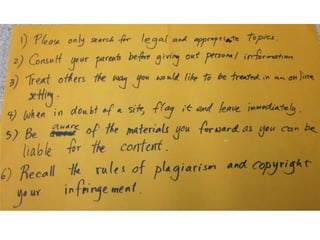 1) Please only search for legal and appropriate topics.
2) Consult your parents before giving out personal information
3) Treat others the way you would like to be treated in an online
setting.
4) When in doubt of a site, flag it and leave immediately.
5) Be aware of the materials you forward as you can be
liable for the content.
6) Recall the rules of plagiarism and copyright
your infringement.